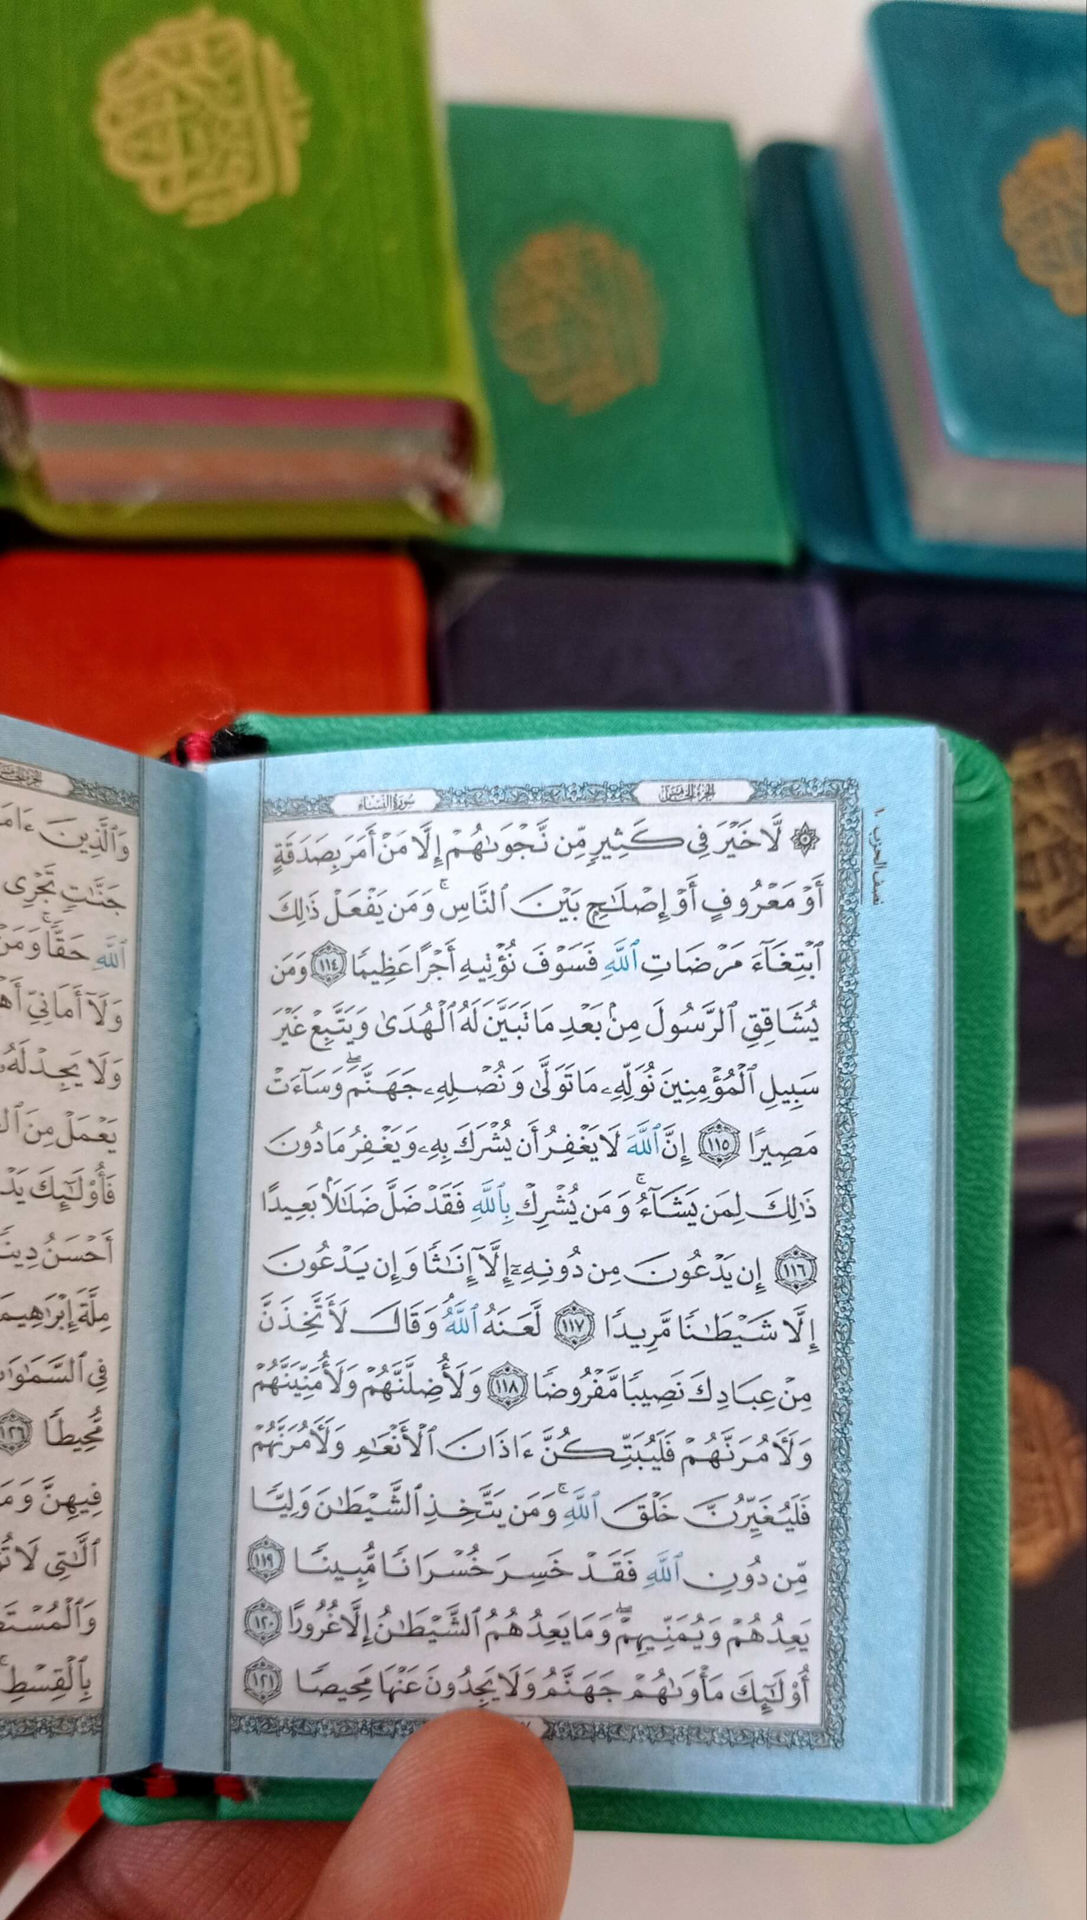 سُورَةُ النِّسَاء
الجُزْءُ الخَامِسُ
نصف الحزب ١٠
۞ لَّا خَيْرَ فِي كَثِيرٍ مِّن نَّجْوَىٰهُمْ إِلَّا مَنْ أَمَرَ بِصَدَقَةٍ
أَوْ مَعْرُوفٍ أَوْ إِصْلَٰحٍۭ بَيْنَ ٱلنَّاسِۚ وَمَن يَفْعَلْ ذَٰلِكَ
ٱبْتِغَآءَ مَرْضَاتِ ٱللَّهِ فَسَوْفَ نُؤْتِيهِ أَجْرًا عَظِيمًا ١١٤ وَمَن
يُشَاقِقِ ٱلرَّسُولَ مِنۢ بَعْدِ مَا تَبَيَّنَ لَهُ ٱلْهُدَىٰ وَيَتَّبِعْ غَيْرَ
سَبِيلِ ٱلْمُؤْمِنِينَ نُوَلِّهِۦ مَا تَوَلَّىٰ وَنُصْلِهِۦ جَهَنَّمَۖ وَسَآءَتْ
مَصِيرًا ١١٥ إِنَّ ٱللَّهَ لَا يَغْفِرُ أَن يُشْرَكَ بِهِۦ وَيَغْفِرُ مَا دُونَ
ذَٰلِكَ لِمَن يَشَآءُۚ وَمَن يُشْرِكْ بِٱللَّهِ فَقَدْ ضَلَّ ضَلَٰلًۢا بَعِيدًا
١١٦ إِن يَدْعُونَ مِن دُونِهِۦٓ إِلَّآ إِنَٰثًا وَإِن يَدْعُونَ
إِلَّا شَيْطَٰنًا مَّرِيدًا ١١٧ لَّعَنَهُ ٱللَّهُۘ وَقَالَ لَأَتَّخِذَنَّ
مِنْ عِبَادِكَ نَصِيبًا مَّفْرُوضًا ١١٨ وَلَأُضِلَّنَّهُمْ وَلَأُمَنِّيَنَّهُمْ
وَلَءَامُرَنَّهُمْ فَلَيُبَتِّكُنَّ ءَاذَانَ ٱلْأَنْعَٰمِ وَلَءَامُرَنَّهُمْ
فَلَيُغَيِّرُنَّ خَلْقَ ٱللَّهِۚ وَمَن يَتَّخِذِ ٱلشَّيْطَٰنَ وَلِيًّا
مِّن دُونِ ٱللَّهِ فَقَدْ خَسِرَ خُسْرَانًا مُّبِينًا ١١٩
يَعِدُهُمْ وَيُمَنِّيهِمْۖ وَمَا يَعِدُهُمُ ٱلشَّيْطَٰنُ إِلَّا غُرُورًا ١٢٠
أُو۟لَٰٓئِكَ مَأْوَىٰهُمْ جَهَنَّمُ وَلَا يَجِدُونَ عَنْهَا مَحِيصًا ١٢١
وَٱلَّذِينَ
جَنَّٰتٍ تَجْرِي
ٱللَّهِ حَقًّاۚ وَمَنْ
وَلَآ أَمَانِيِّ
وَلَا يَجِدْ لَهُۥ
يَعْمَلْ مِنَ
فَأُو۟لَٰٓئِكَ
أَحْسَنُ دِينًا
مِلَّةَ إِبْرَٰهِيمَ
فِي ٱلسَّمَٰوَٰتِ
مُّحِيطًا ١٢٦
فِيهِنَّ
ٱلَّٰتِي لَا
بِٱلْقِسْطِۚ